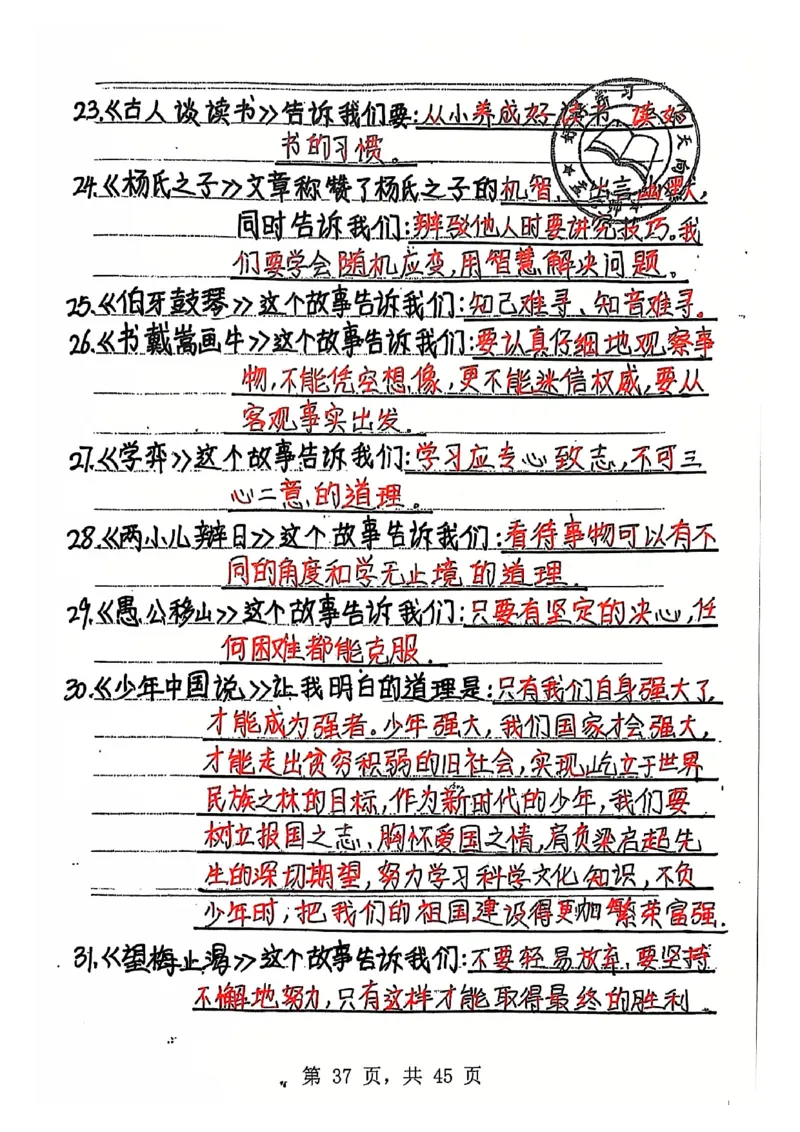 23.《古人谈读书》告诉我们要:从小养成好读书、读好
书的习惯。
24.《杨氏之子》文章称赞了杨氏之子的机智、出言幽默,
同时告诉我们:辩驳他人时要讲究技巧。我
们要学会随机应变,用智慧解决问题。
25.《伯牙鼓琴》这个故事告诉我们:知己难寻、知音难寻。
26.《书戴嵩画牛》这个故事告诉我们:要认真仔细地观察事
物,不能凭空想像,更不能迷信权威,要从
客观事实出发。
27.《学弈》这个故事告诉我们:学习应专心致志,不可三
心二意的道理。
28.《两小儿辩日》这个故事告诉我们:看待事物可以有不
同的角度和学无止境的道理.
29.《愚公移山》这个故事告诉我们:只要有坚定的决心,任
何困难都能克服.
30.《少年中国说》让我明白的道理是:只有我们自身强大了,
才能成为强者。少年强大,我们国家才会强大,
才能走出贫穷积弱的旧社会,实现屹立于世界
民族之林的目标,作为新时代的少年,我们要
树立报国之志、胸怀爱国之情,肩负梁启超先
生的深切期望,努力学习科学文化知识,不负
少年时;把我们的祖国建设得更加繁荣富强.
31.《望梅止渴》这个故事告诉我们:不要轻易放弃,要坚持
不懈地努力,只有这样才能取得最终的胜利.
第 37 页,共 45 页